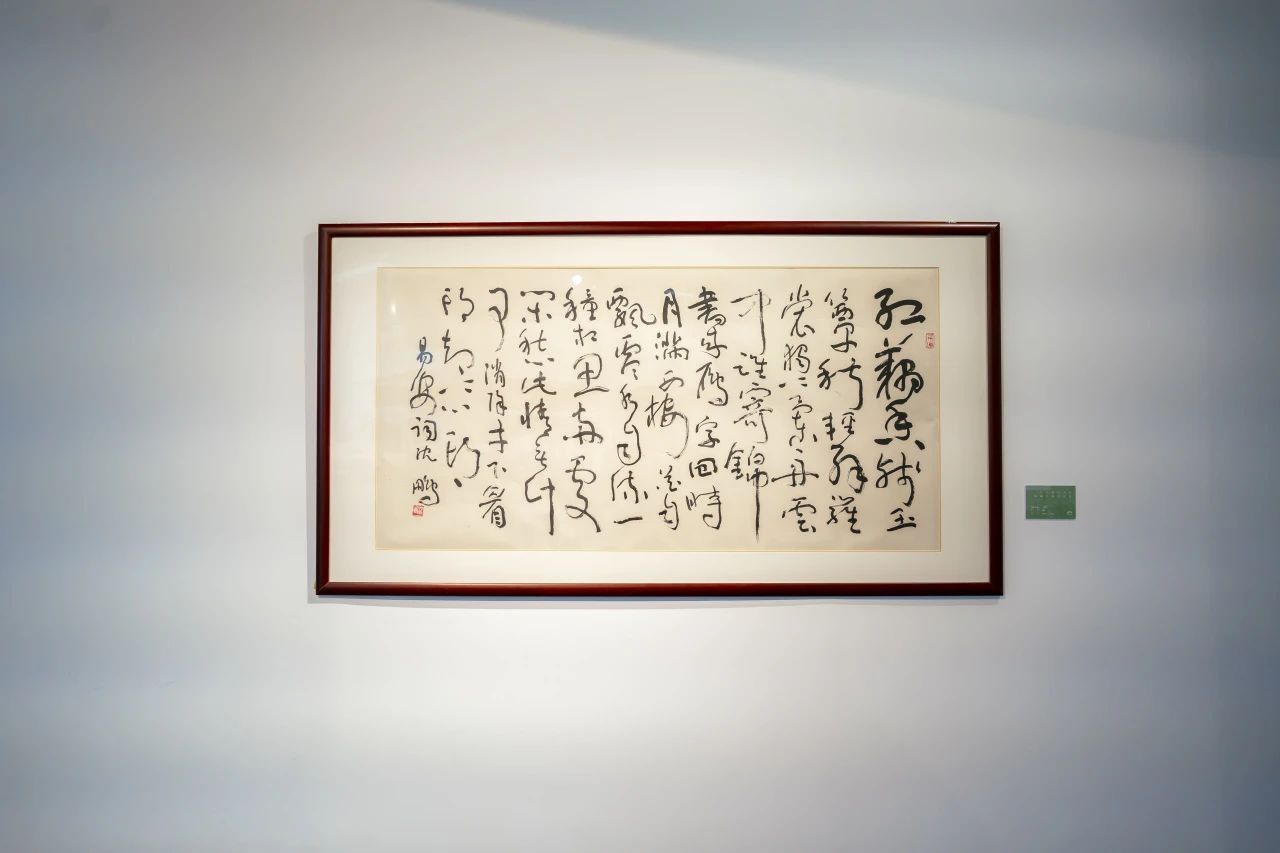 紅藕香殘玉
簟秋輕解羅
裳獨上蘭舟雲
中誰寄錦
書來雁字回時
月滿西樓花自
飄零水自流一
種相思兩處
閑愁此情無計
可消除才下眉
頭卻上心頭
易安詞沈鵬